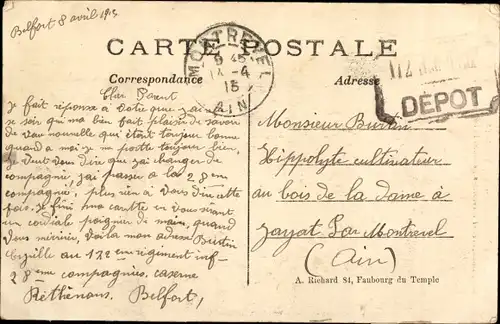 Belfort 8 avril 1915
CARTE POSTALE
Correspondance
Adresse
MONTREVEL
AIN
DÉPOT
Cher Parent
Je fait réponse à votre que j'ai
ce soir qui ma bien fait plaisir de savoir
de vau nouvelle qui était toujour bonne
quand a moi je me portte toujour bien,
Je veut vou dire que j'ai changer de
compagnie, j'ai passer a la 28 em
compagnie; plus rien a vous dire cette
fois. Je fini ma cartte en vous serant
un cordiale poigner de main, quand vous
, Voila mon adress Burtin
au 172 em régiment inf
28 eme compagnies, caserne
Réthenans. Belfort,
Monsieur Burtin
Hippolyte cultivateur
au bois de la dame à
Jayat Par Montrevel
(Ain)
A. Richard 84, Faubourg du Temple